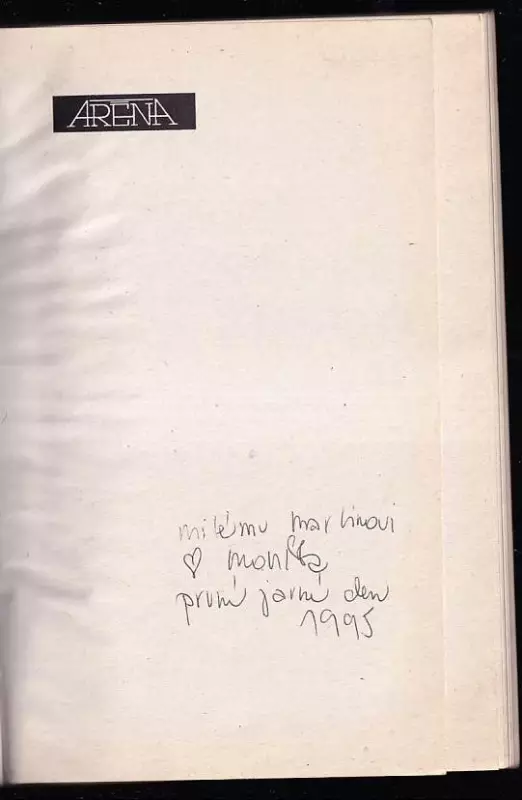 ARENA
milému martinovi
♡ monika
první jarní den
1995